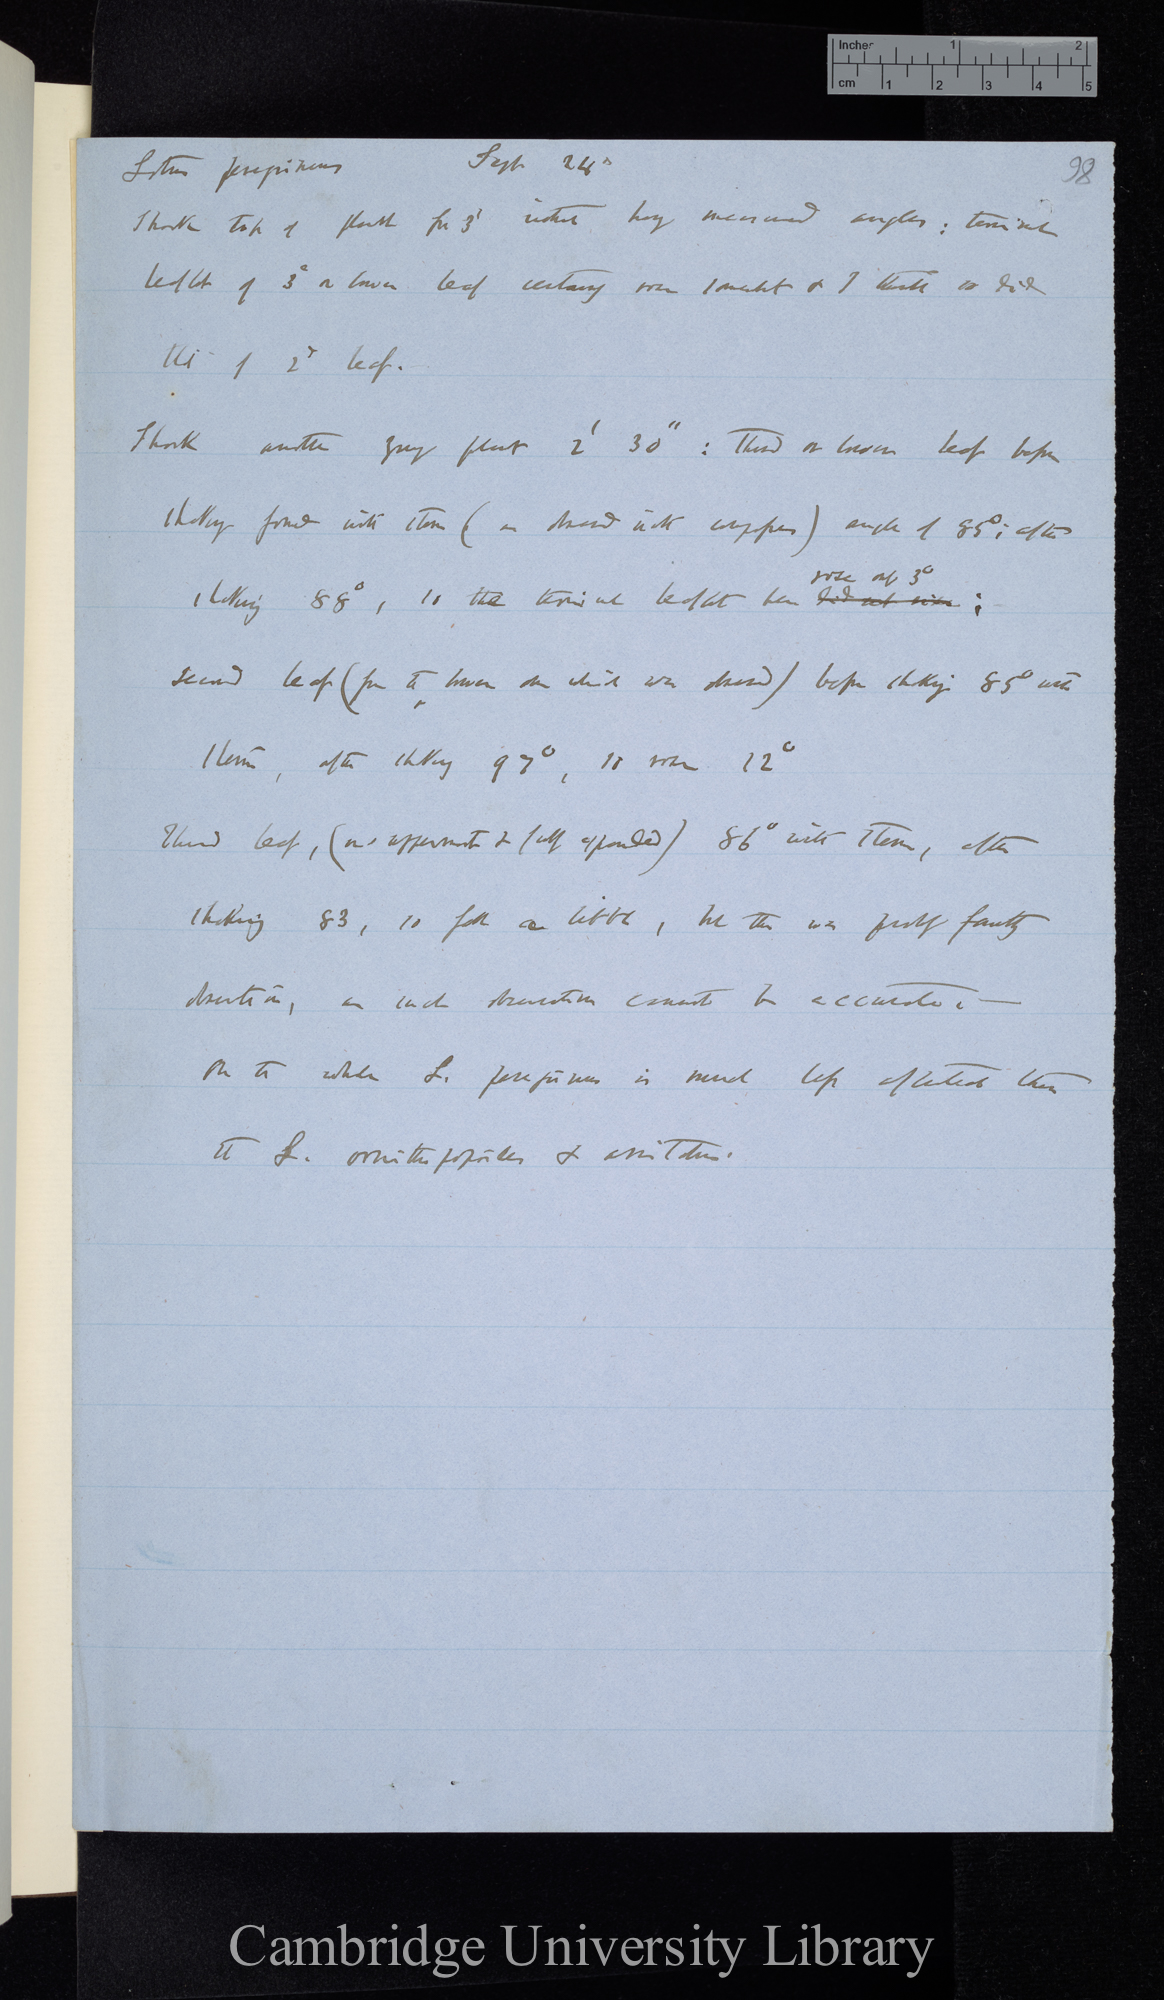 Inches 1 2
cm 1 2 3 4 5
98
Lotus peregrinus Sept 24th
Shook top of plant for 3' without having measured angles; terminal
leaflet of 3d or lower leaf certainly rose somewhat & I think so did
this of 2d leaf.
Shook another young plant 2' 30": Third or lower leaf before
shaking formed with stem ( as observed with compasses ) angle of 85°; after
shaking 88°, so the terminal leaflet here did not rise rose only 3° ;
second leaf ( from the lower one which was observed ) before shaking 85° with
stem, after shaking 97°, so rose 12°
Third leaf, ( & fully expanded ) 86° with stem, after
shaking 83, so fell a little, but this was probably faulty
observation, as such observations cannot be accurate. —
On the whole L. peregrinus is much less affected than
the L. ornithopopoides & aristatus.
Cambridge University Library